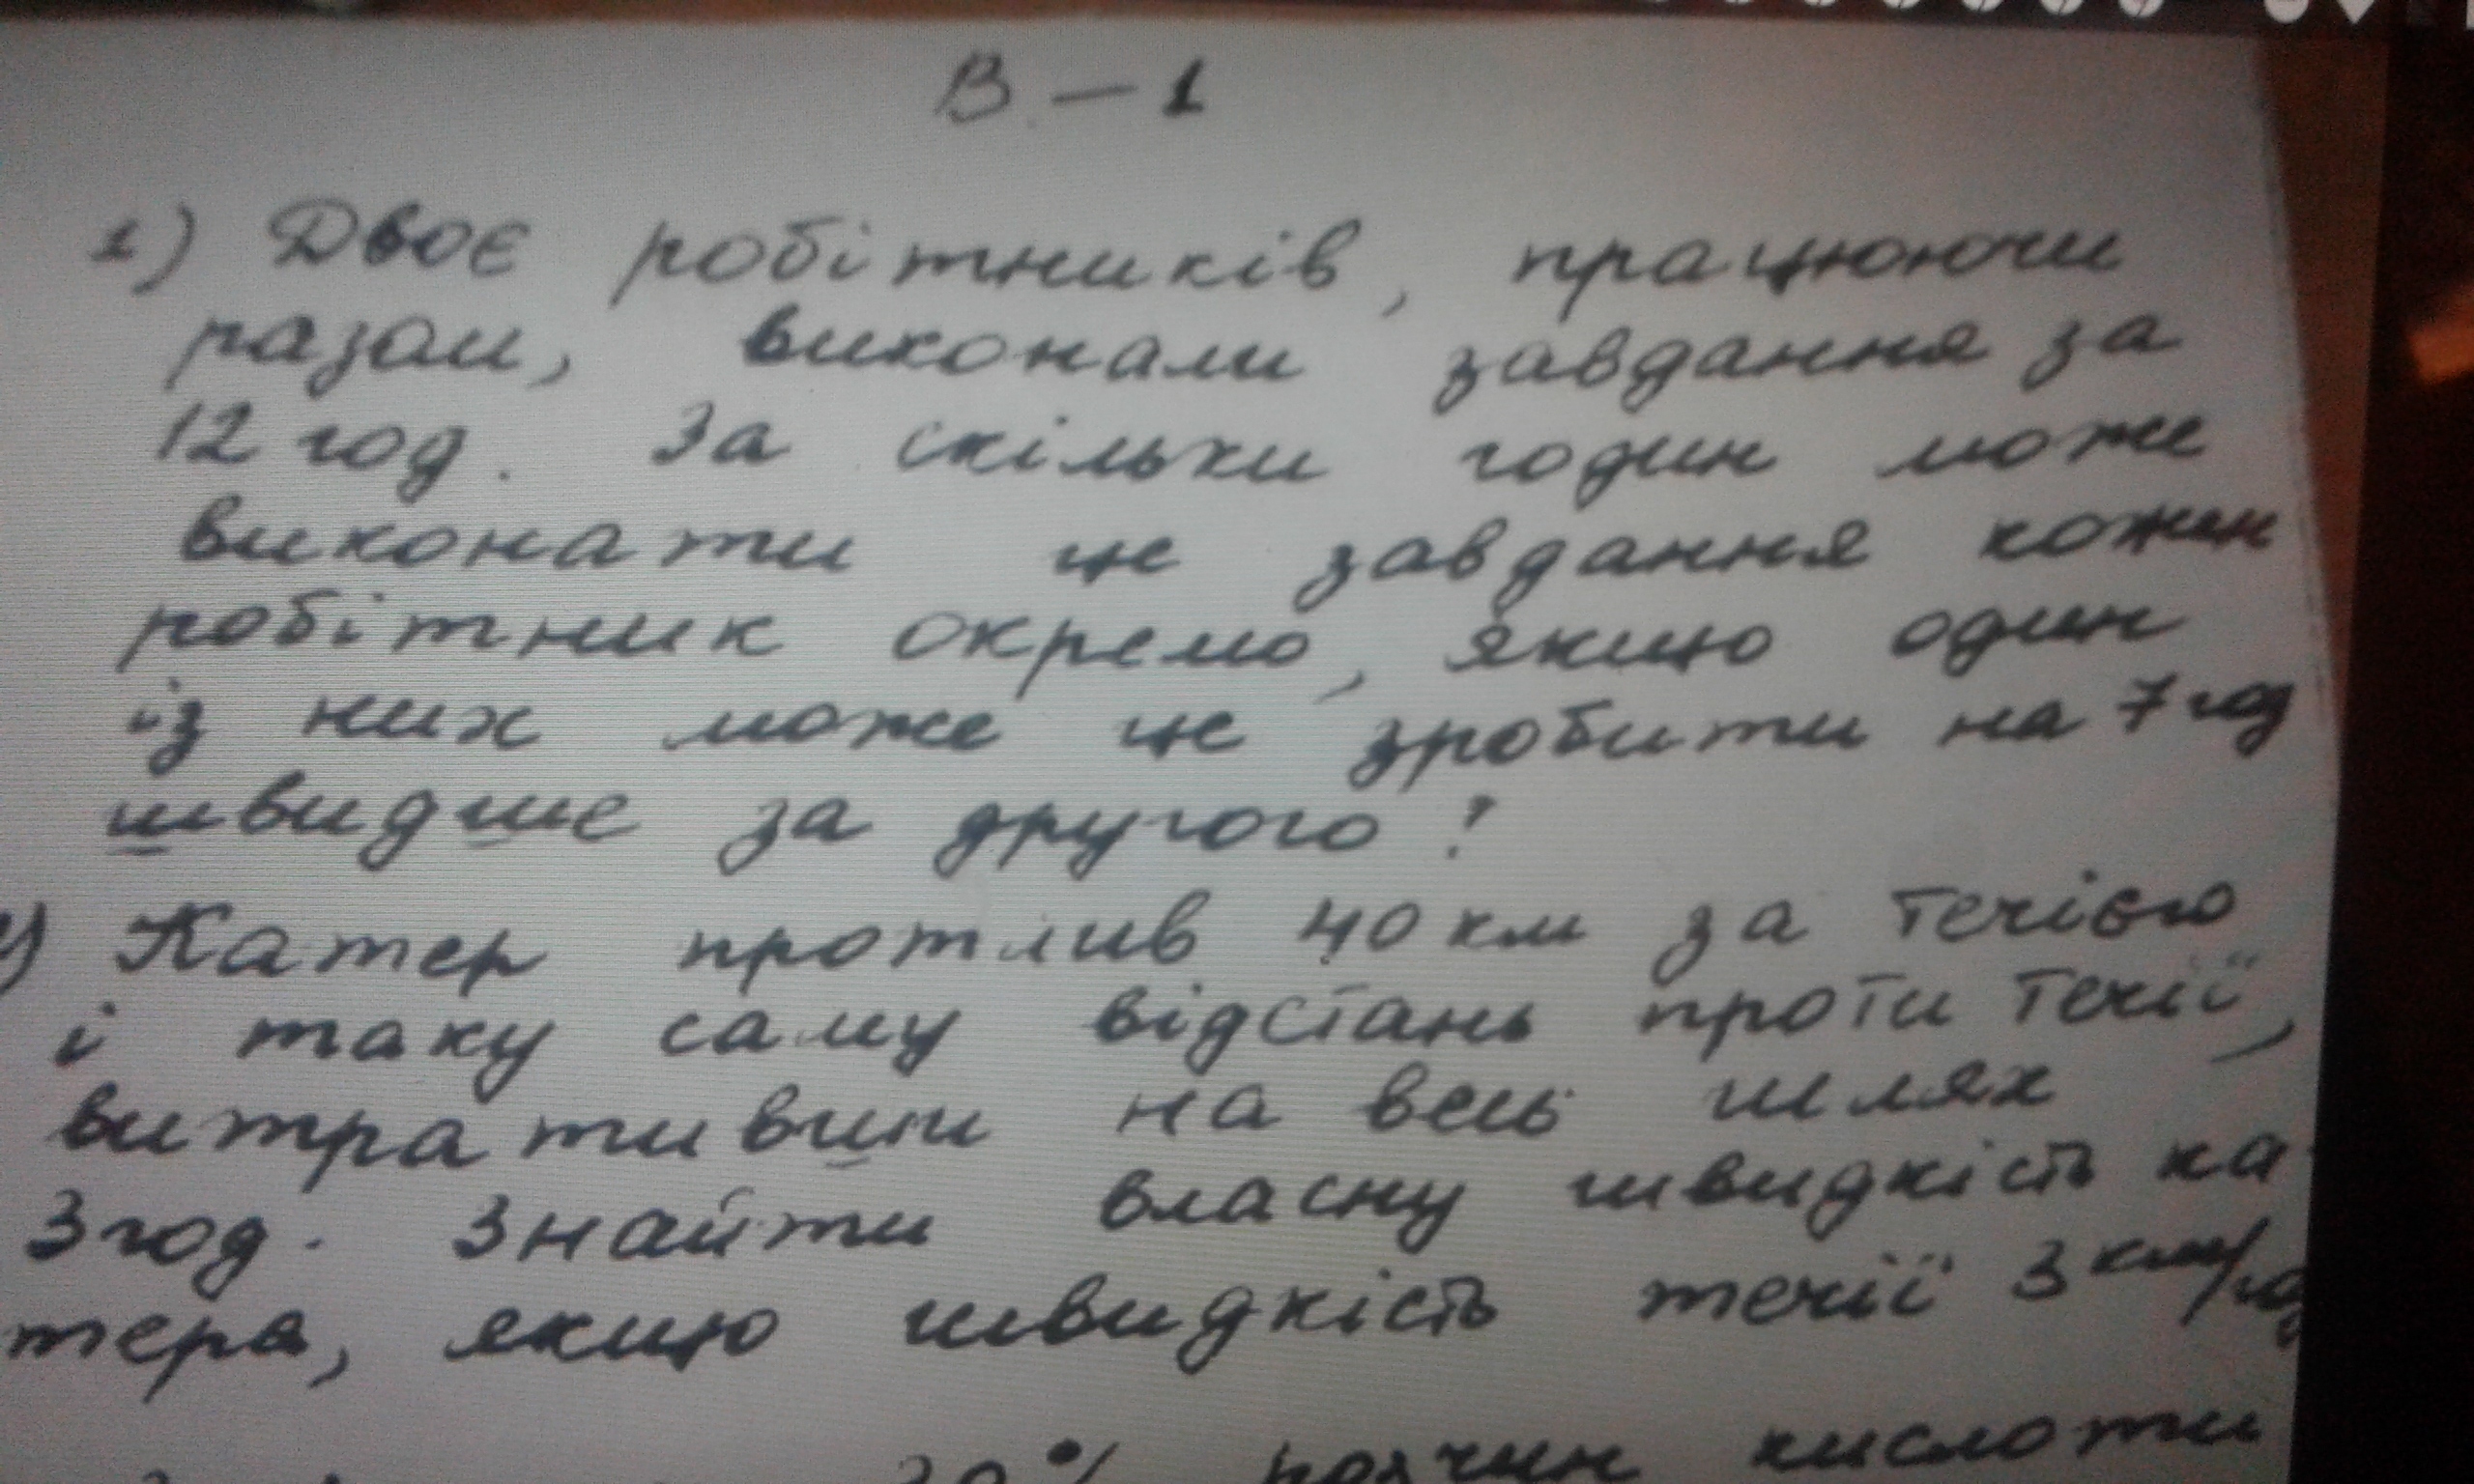 В – 1
1) Двоє робітників, працюючи
разом, виконали завдання за
12 год. За скільки годин може
виконати це завдання кожен
робітник окремо, якщо один
із них може це зробити на 7 год
швидше за другого?
Катер проплив 40 км за течією
і таку саму відстань проти течії,
витративши на весь шлях
3 год. Знайти власну швидкість ка-
тера, якщо швидкість течії 3 км/год
розчин кислоти